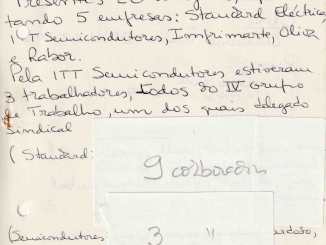 tando 5 empresas: Standard Eléctrica,
ITT Semicondutores, Imprimarte, Oliva
e Rabor.
Pela ITT Semicondutores estiveram
3 trabalhadores, todos do IV Grupo
de Trabalho, um dos quais delegado
sindical
(Standard:
9
(Semicondutores
3 "